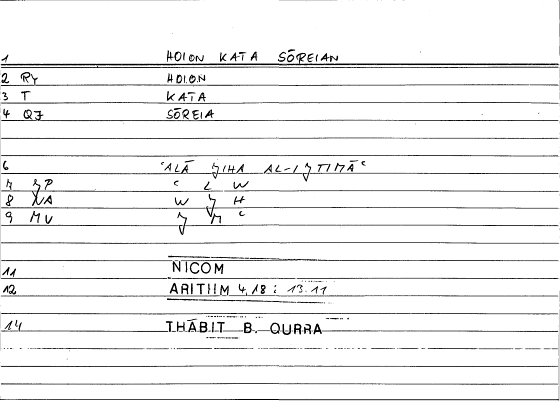 1 HOION KATA SŌREIAN
2 RY HOION
3 T KATA
4 QJ SŌREIA
6 ʿALĀ ǦIHA AL-IǦTIMĀʿ
7 ǦP ʿ L W
8 W Ǧ H
9 MU Ǧ M ʿ
11 NICOM
12 ARITHM 4,18 : 13.11
14 THĀBIT B. QURRA